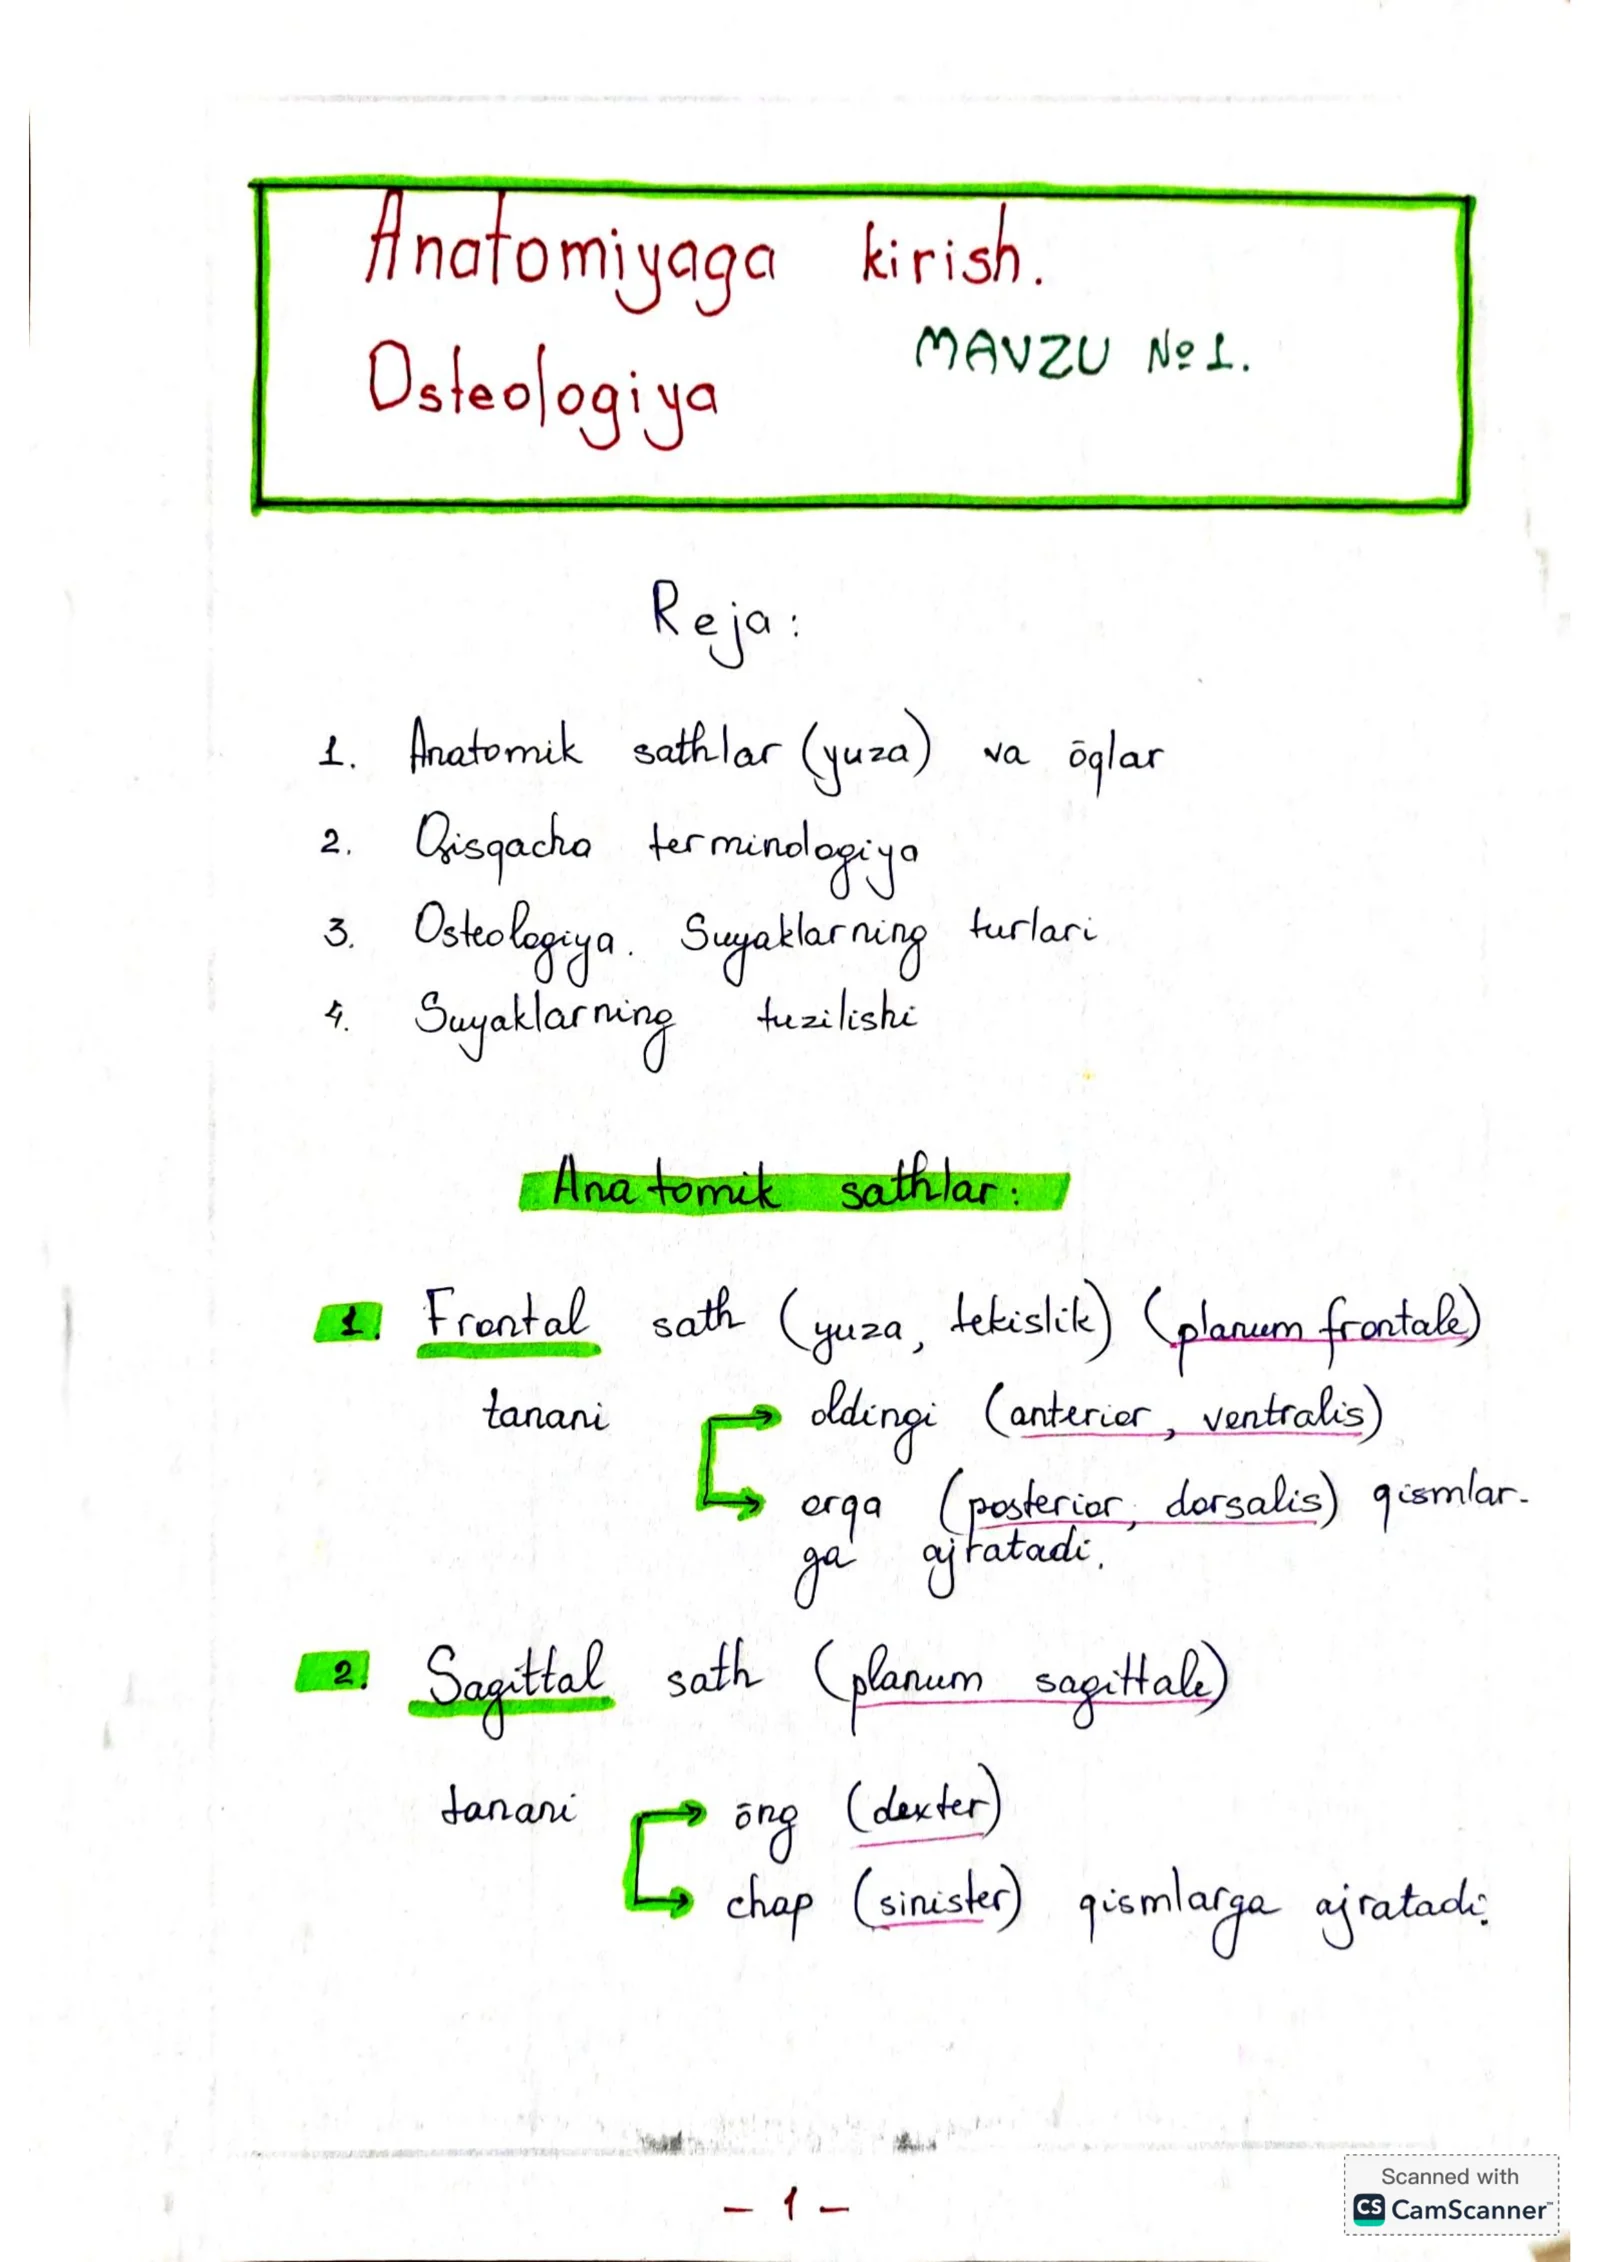 Anatomiyaga kirish.
MAVZU №1.
Osteologiya
Reja:
1. Anatomik sathlar (yuza) va ōqlar
2. Qisqacha terminologiya
3. Osteologiya. Suyaklarning turlari
4. Suyaklarning tuzilishi
Anatomik sathlar:
1. Frontal sath (yuza, tekislik) (planum frontale)
tanani oldingi (anterior, ventralis)
orqa (posterior, dorsalis) qismlar-
ga ajratadi.
2. Sagittal sath (planum sagittale)
tanani ōng (dexter)
chap (sinister) qismlarga ajratadi.
- 1 -
Scanned with
CS CamScanner™